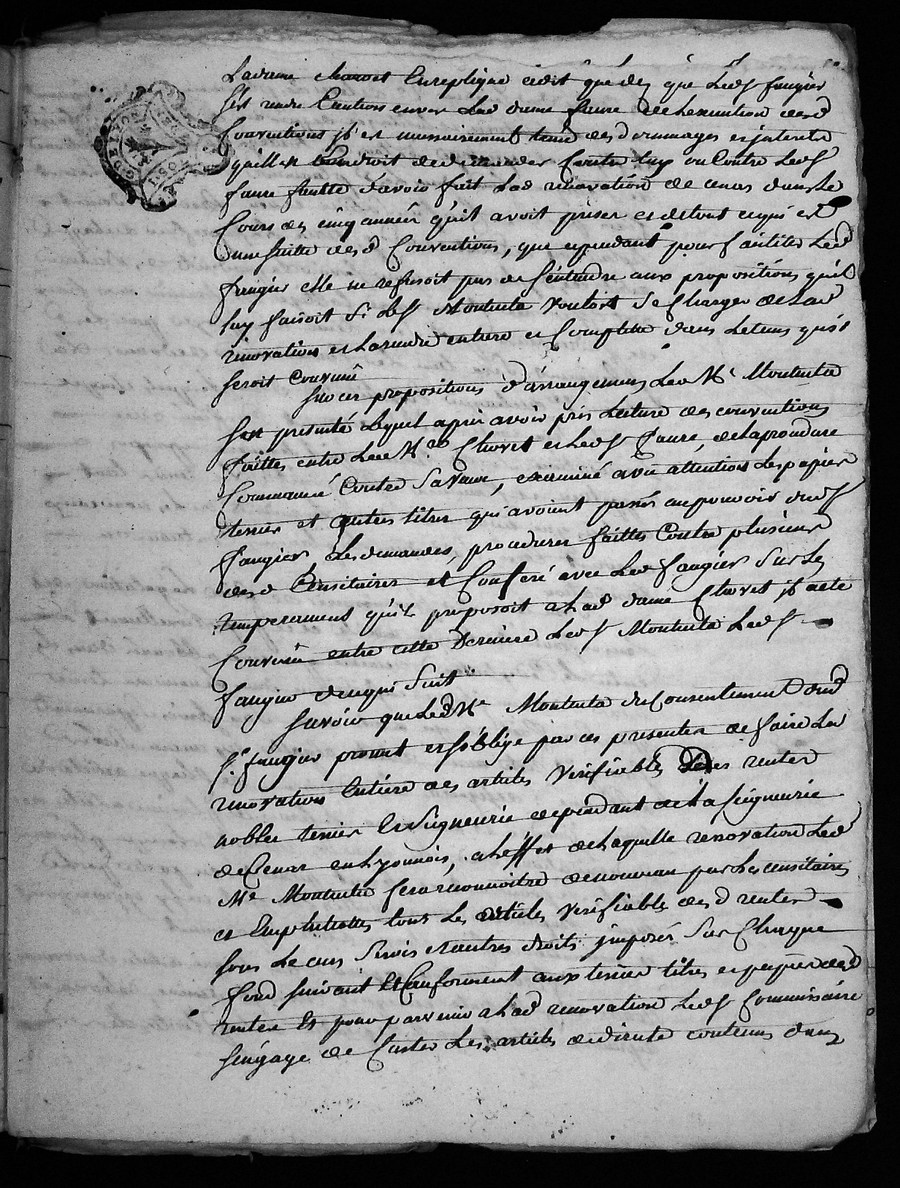 La dame Chovet En replique a dit que des que Led S. faugier
s'est rendu Caution envers Lad dame faure de Lexecution desd
Conventions jl est necessairement tenu des dommages et jnterets
quelle est Endroit de demander Contre luy ou Contre Led S.
faure fautte d'avoir fait Lad renovation de cens dans Le
Cours des cinq années qu'il avoit prises et de tout ce qui est
une suitte desd Conventions, que cependant pour faciliter Led
faugier elle ne refusoit pas de s'entendre aux propositions qu'il
luy faisoit Si Led S. Montuela Vouloit Se Charger de Lad
renovation et La rendre entiere et Complette dans Le tems qui
seroit Convenu
Sur ces propositions d'arrangemens Led M.e
S'est presenté Lequel apres avoir pris Lecture des conventions
faittes entre Led M.e Chovet et Led S. faure, de La procedure
Commencé Contre La veuve, examiné avec attention Les papier
terrier et autres titres qui avoient passés au pouvoir dud S.
faugier Les demandes, procedures faittes Contre plusieurs
desd Censitaires et Conferé avec Led faugier Sur Le
temperament qu'il proposoit a Lad dame Chovet jl a eté
Convenu entre cette Derniere Led S. Led S.
faugier de ce qui Suit
Savoir que Led M.e du Consentement dud
S.r faugier promet et s'oblige par ces presentes de faire La
renovation Entiere des articles Verifiables des rentes
nobles terrier et Seigneurie dependant de La Seigneurie
de en Lyonnois, a L'effet de Laquelle renovation Led
M.e fera reconnoitre de nouveau par Les censitaires
et Emphiteotes tous Les articles Verifiable desd rentes
sous Le cens Servis et autres droits jmposés Sur Chaque
fond suivant Et Conforment aux terrier titres et papier desd
rentes Et pour parvenir a Lad renovation Led S. Commissaire
s'engage de Caster Les articles de directe contenus dans